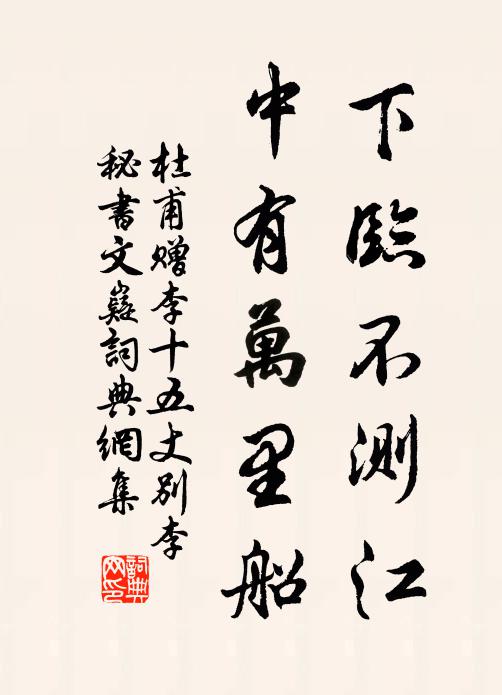 下臨不測江
中有萬里船
杜甫贈李十五丈別李
秘書文嶷詞典網集
詞典
网印